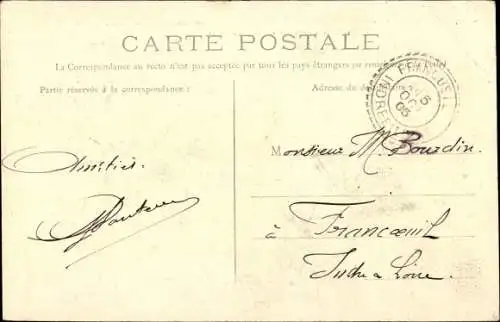 CARTE POSTALE
La Correspondance au recto n'est pas acceptée par tous les pays étrangers
Partie réservée à la correspondance:
Adresse du
FRANCUEIL
Amitiés.
Monsieur M. Bourdin.
à Francœuil
Indre à Loire.